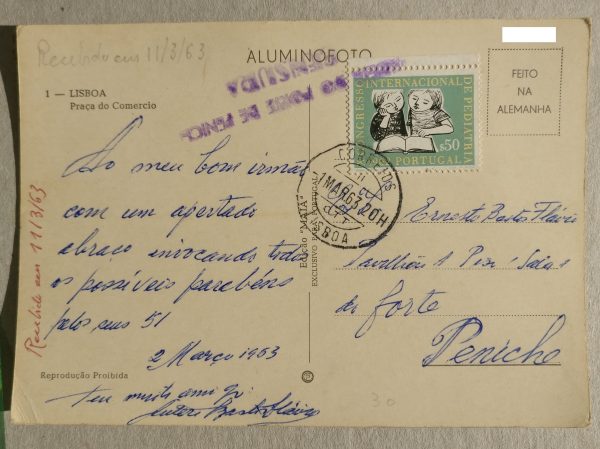 Recebido em 11/3/63
ALUMINOFOTO
1 — LISBOA
Praça do Comercio
CENSURA
DO FORTE DE PENICHE
FEITO
NA
ALEMANHA
CONGRESSO INTERNACIONAL DE PEDIATRIA
PORTUGAL $50
CORREIOS
1 MAR 63 20H
LISBOA
Ao meu bom irmão
com um apertado
abraco invocando todos
os possíveis parabéns
pelos seus 51
2 Março 1963
Teu muito amigo
Bastos Flávio
Recebido em 11/3/63
Reprodução Proibida
Edição "MAIA"
EXCLUSIVO PARA PORTUGAL
Ernesto Bastos Flávio
Pavilhão 1 Piso Sala 1
do forte
Peniche
30